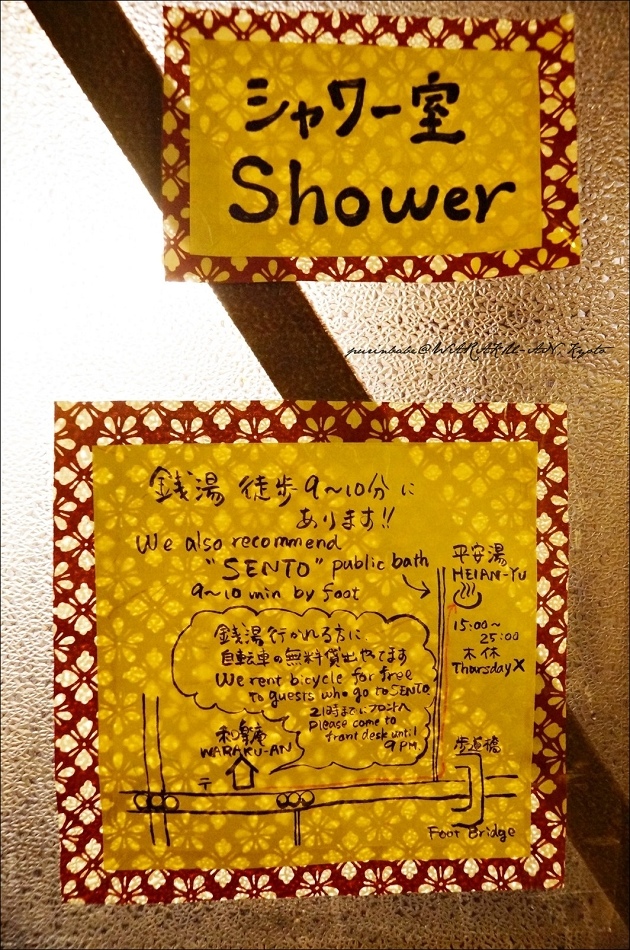 シャワー室
Shower
purinbabe@WARAKU-AN, Kyoto
銭湯 徒歩9~10分に
あります!!
We also recommend
"SENTO" public bath
9~10 min by foot
平安湯
HEIAN-YU
15:00~
25:00
木休
Thursday X
銭湯行かれる方に
自転車の無料貸出やてます
We rent bicycle for free
To guests who go to SENTO
21時までにフロントへ
Please come to
front desk until
9PM
和楽庵
WARAKU-AN
〒
歩道橋
Foot Bridge